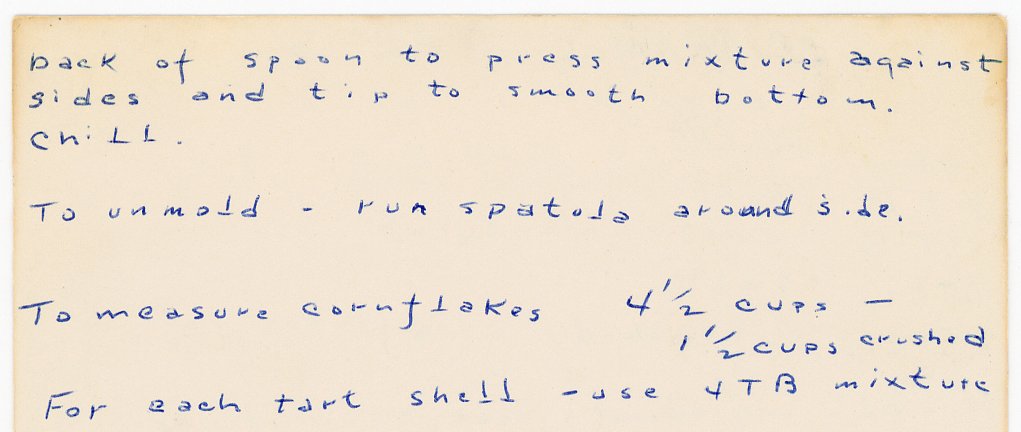 back of spoon to press mixture against
sides and tip to smooth bottom.
Chill.
To unmold - run spatula around side.
To measure cornflakes 4 1/2 cups -
1 1/2 cups crushed
For each tart shell - use 4 TB mixture